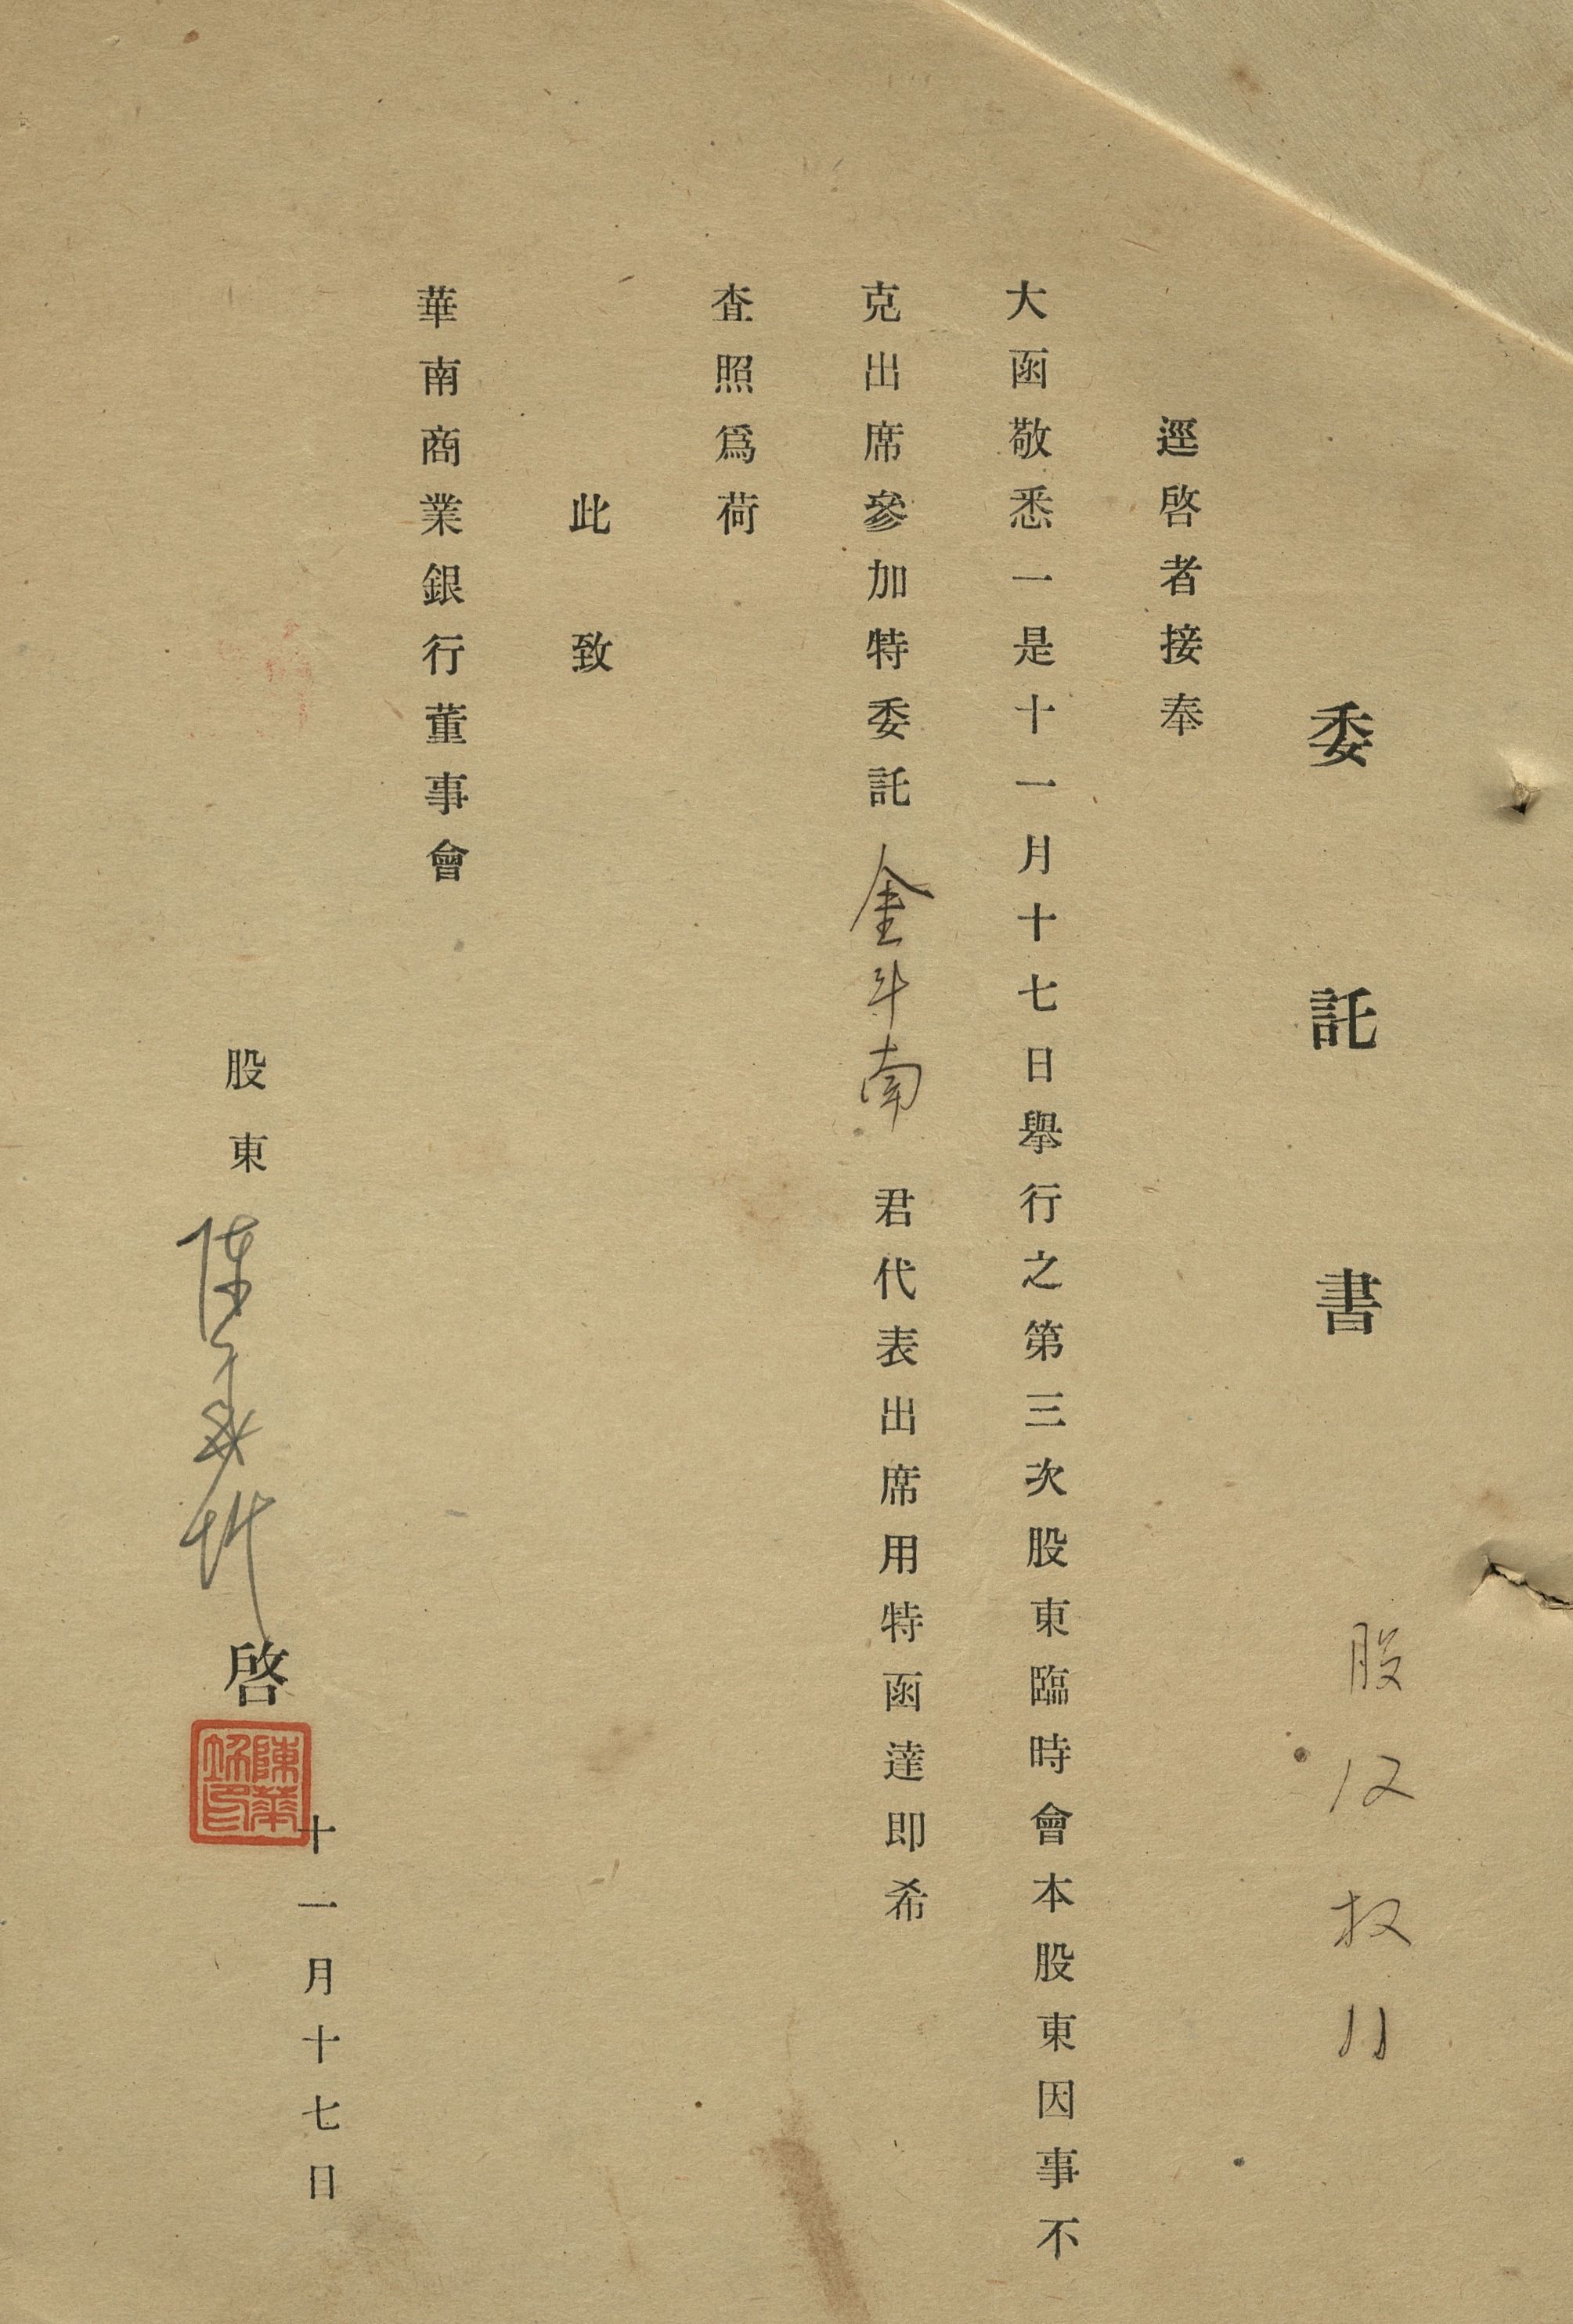 委託書
股 权
逕啓者接奉
大函敬悉一是十一月十七日舉行之第三次股東臨時會本股東因事不
克出席參加特委託 金斗南 君代表出席用特函達即希
査照爲荷
此致
華南商業銀行董事會
股東 陳 啓
十一月十七日